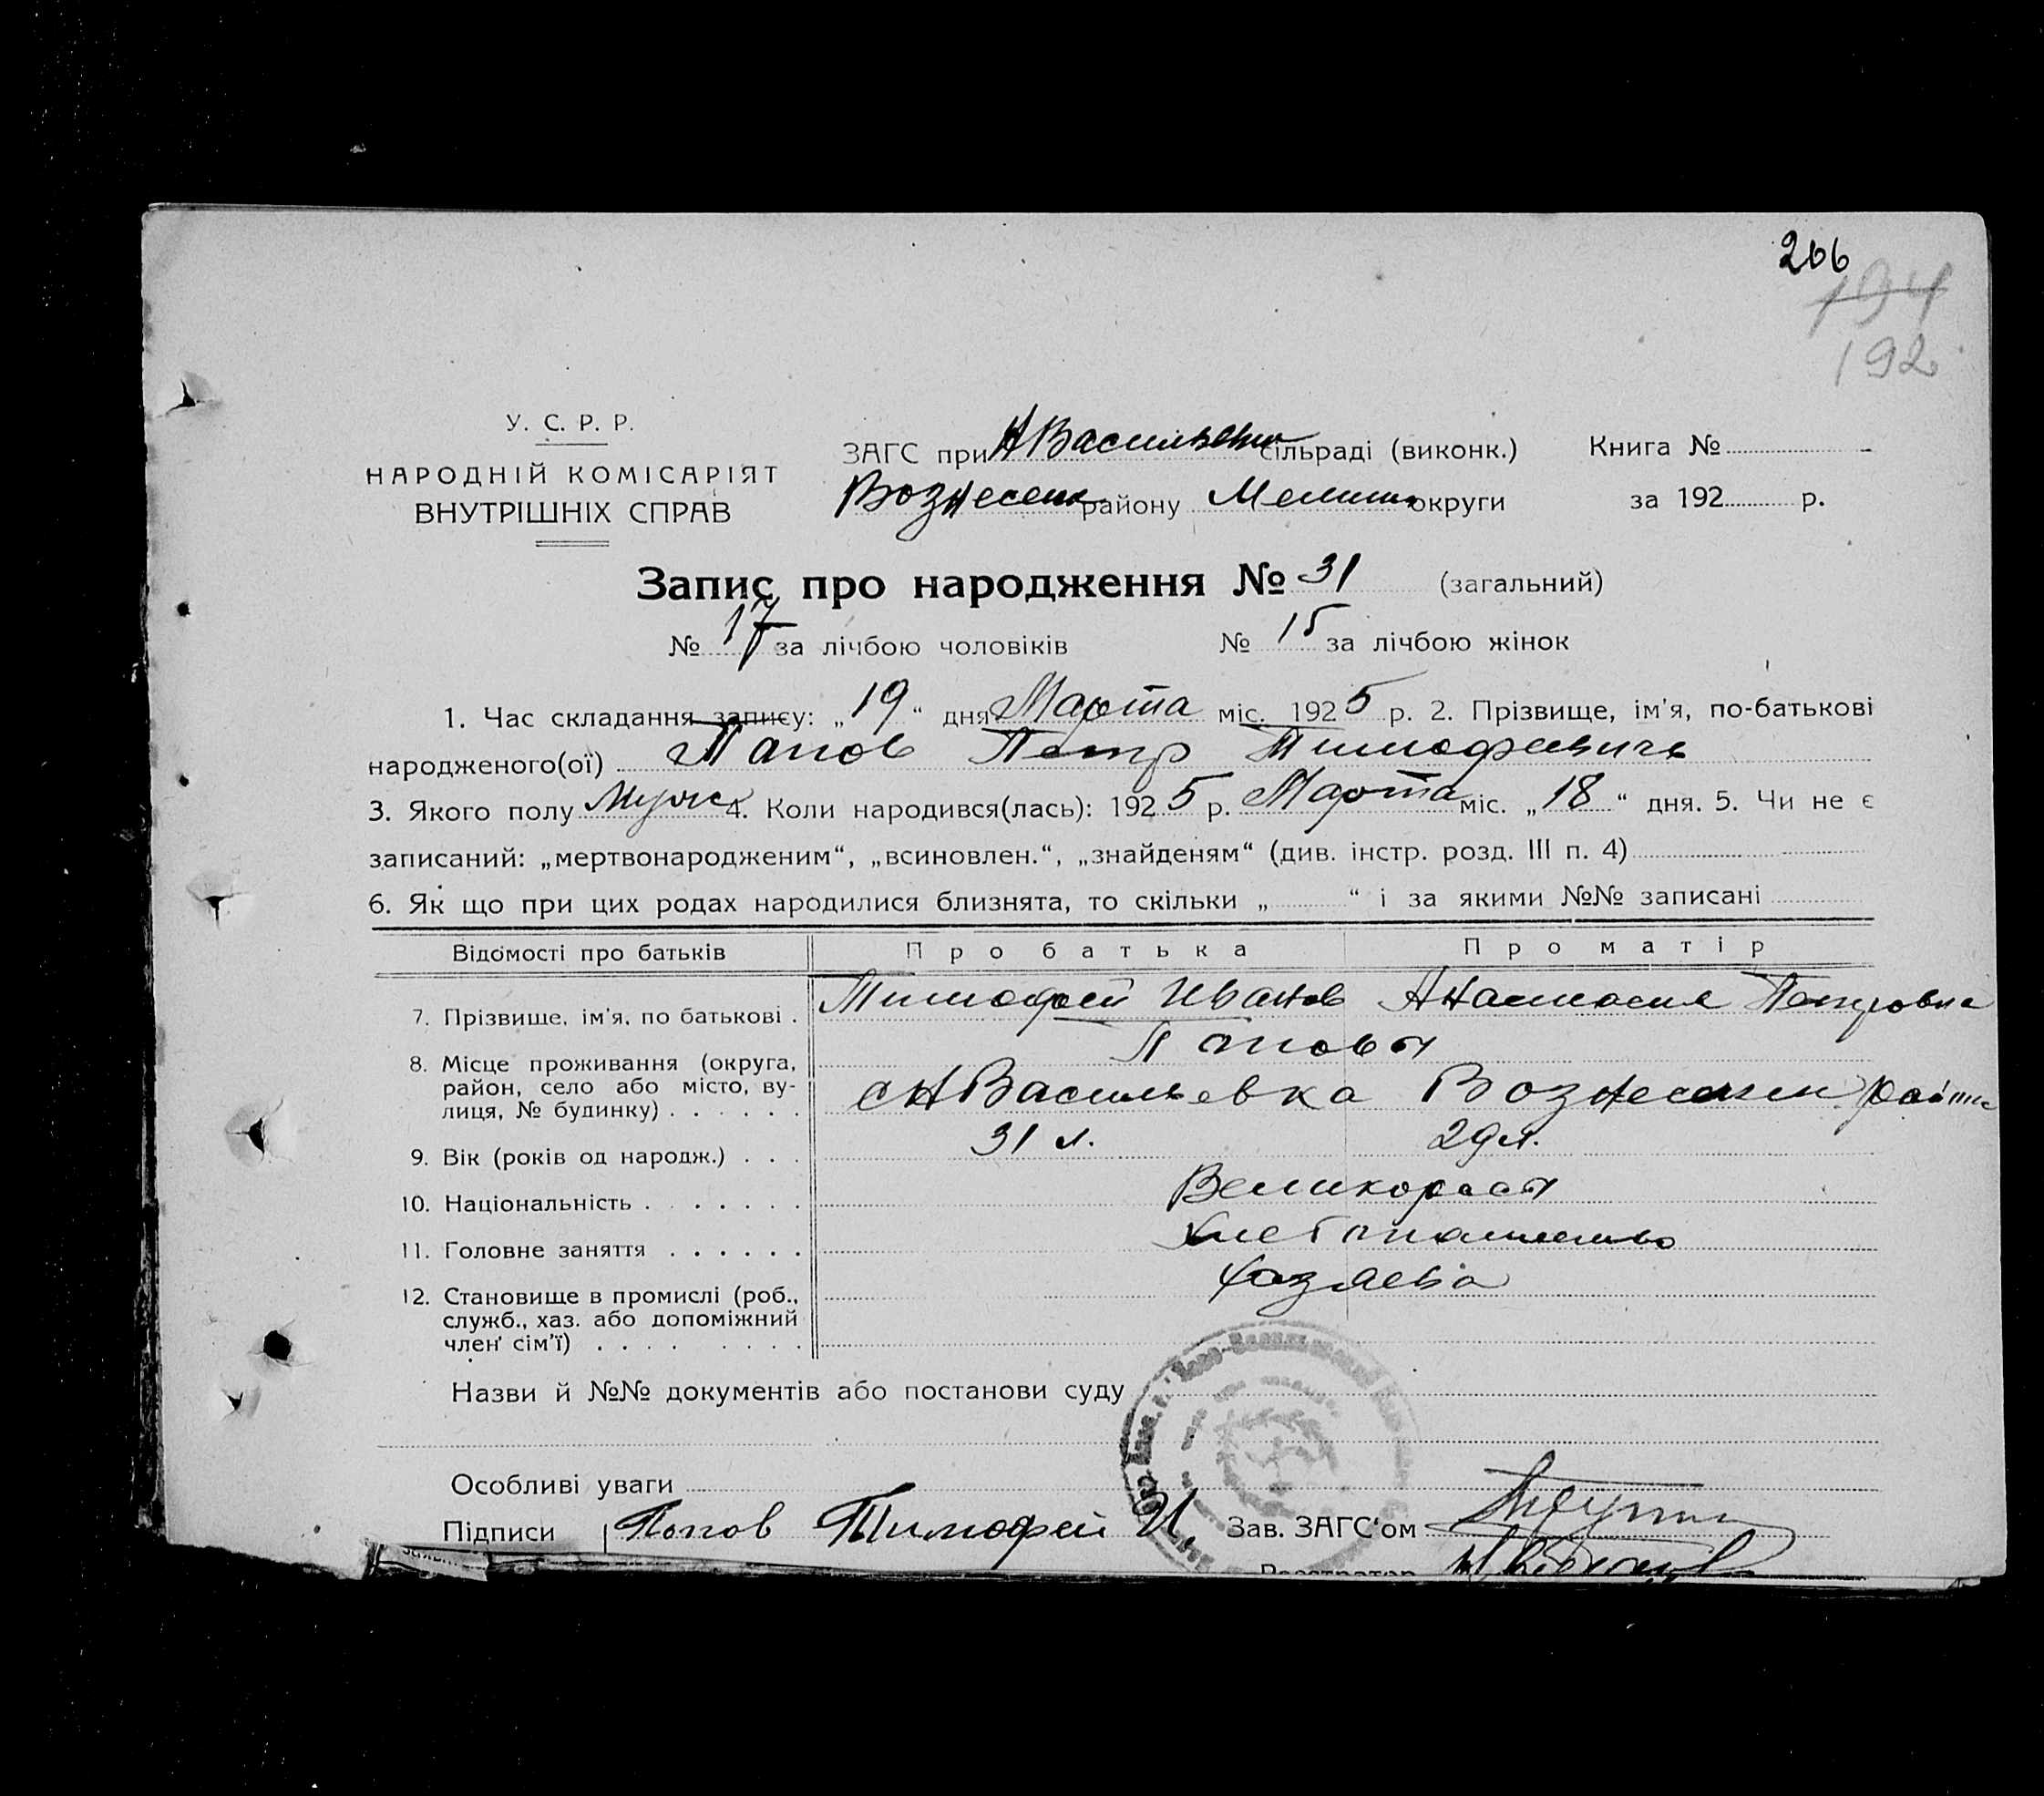 206
194
192
У. С. Р. Р.
НАРОДНІЙ КОМІСАРІЯТ
ВНУТРІШНІХ СПРАВ
ЗАГС при Н Васильевск сільраді (виконк.) Книга №
Вознесенк району Мелит округи за 192 р.
Запис про народження № 31 (загальний)
№ 17 за лічбою чоловіків № 15 за лічбою жінок
1. Час складання запису: „19“ дня Марта міс. 1925 р. 2. Прізвище, ім'я, по-батькові
народженого(ої) Папов Петр Тимофеевичь
3. Якого полу Муж 4. Коли народився(лась): 1925 р. Марта міс. „18“ дня. 5. Чи не є
записаний: „мертвонародженим“, „всиновлен.“, „знайденям“ (див. інстр. розд. III п. 4)
6. Як що при цих родах народилися близнята, то скільки „ “ і за якими №№ записані
Відомості про батьків Про батька Про матір
7. Прізвище, ім'я, по батькові . Тимофей Иванов Анастасия Петровна
Паповы
8. Місце проживання (округа,
район, село або місто, ву-
лиця, № будинку) . . . . . . с Н Васильевка Вознесенск района
9. Вік (років од народж.) . . . 31 л. 29 л.
10. Національність . . . . . . . Великоросы
11. Головне заняття . . . . . . Хлебопашество
12. Становище в промислі (роб.,
служб., хаз. або допоміжний
член сім'ї) . . . . . . . . Хазяева
Назви й №№ документів або постанови суду
Особливі уваги
Підписи Попов Тимофей И. Зав. ЗАГС'ом
Реєстратор